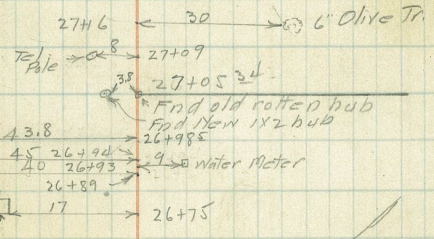 27+16 30 6" Olive Tr.
Tel. Pole 8 27+09
3.8 27+05 34
Fnd old rotten hub
Fnd New 1x2 hub
43.8 26+985
45 26+94 9 Water Meter
40 26+93
26+89
17 26+75